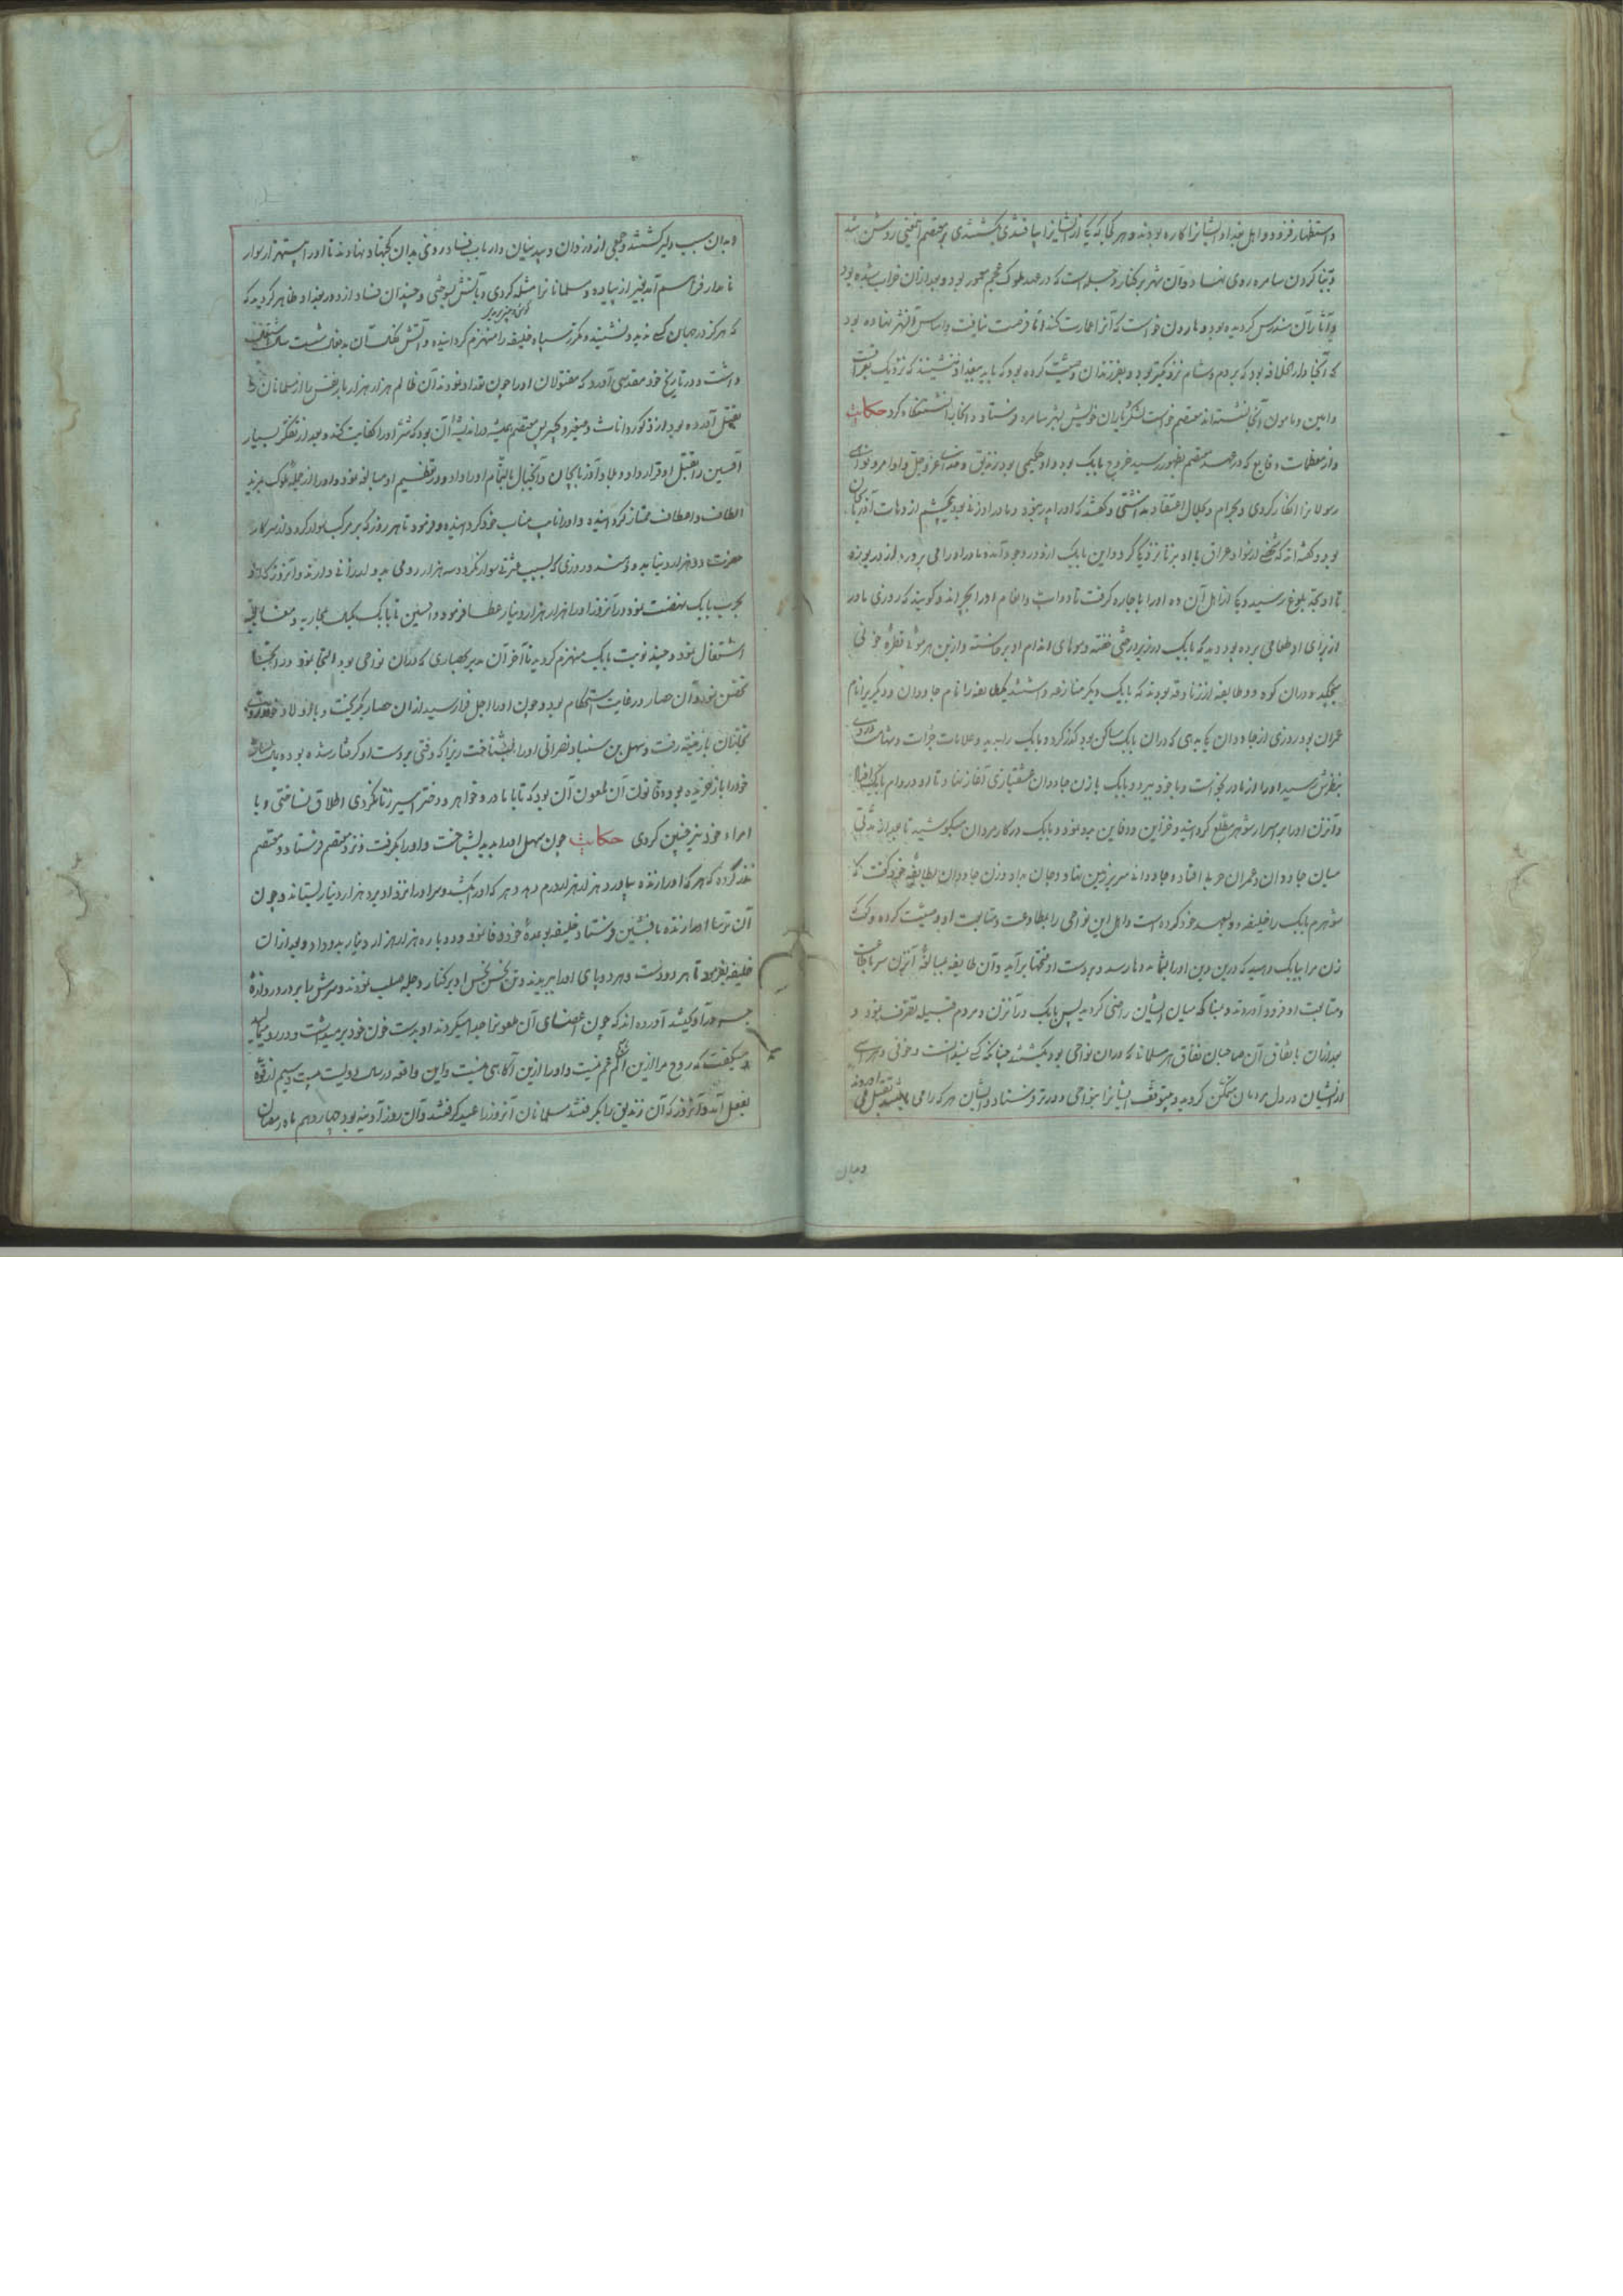 واستظهار فزود و اهل بغداد ایشانرا کاره بودند و هر کجا که یکی از ایشانرا یافتندی بکشتندی بر معتصم اینمعنی روشن شد
و بنا کردن سامره روی نهاد و آن شهر بر کنار دجله است که در عهد ملوک عجم معمور بود و بعد از آن خراب شده بود
و آثار آن مندرس گردیده بود و هارون خواست که آنرا عمارت کند اما فرصت نیافت و اساس آنشهر نهاده بود
که آنجا دار الخلافه بود که بروم و شام نزدیکتر بود و بفرزندان وصیت کرده بود که باید ببغداد ننشینند که نزدیک بعراق است
و امین و مامون آنجا نشستند اما معتصم خواست لشکریان خویش بشهر سامره فرستاد و آنجا نشستگاه کرد حکایت
و از معظمات وقایع که در عهد معتصم بظهور رسید خروج بابک بود و او حکیمی بود زندیق و خدای عز و جل و اوامر و نواهی
رسولانرا انکار کردی و بحرام و حلال اعتقاد نداشتی و گفته‌اند که او را پدر نبود و مادر او زنی بود یکچشم از دهات آذربایجان
بود و گفته‌اند که شخصی از سواد عراق با او بزنا نزدیکی کرد و این بابک از او در وجود آمد و مادر او را می پرورد از دریوزه
تا او بحد بلوغ رسید و یکی از اهل آن ده او را باجاره گرفت تا دواب و اغنام او را بچراند و گویند که روزی مادر
از برای او طعامی برده بود دید که بابک در زیر درختی خفته و موهای اندام او برخاسته و از بن هر موئی قطره خونی
میچکید و در آن کوه دو طایفه از زنادقه بودند که با یکدیگر منازعه داشتند یکطایفه را نام جاودان و دیگریرا نام
عمران بود روزی از جاودان بدهی که در آن بابک ساکن بود گذر کرد و بابک را بدید و علامات جرأت و شهامت در وی
بنظرش رسید او را از مادر بخواست و با خود ببرد و بابک با زن جاودان عشقبازی آغاز نهاد تا او در دام بابک افتاد
و آنزن او را بر اسرار شوهر مطلع گردانید و خزاین و دفاین بدو نمود و بابک در کار مردان میکوشید تا بعد از مدتی
میان جاودان و عمران حرب افتاد و جاودانه سر بر زمین نهاد و جان بداد و زن جاودان بطایفه خود گفت که
شوهرم بابک را خلیفه و ولیعهد خود کرده است و اهل این نواحی را بمطاوعت و متابعت او وصیت کرده و گفت
زن مرا ببابک دهید که درین دین او را بشما مدد رسد و بر دست او فتحها برآید و آن طایفه بمبالغه آنزن سر باطاعت
و متابعت او فرود آوردند و بنا که میان ایشان راضی گردید پس بابک در آنزن و مردم قبیله تصرف نمود و
بعد از آن باتفاق آن صاحبان نفاق هر مسلمانی که در آن نواحی بود بکشتند چنانکه کسی ندانست و خوفی و هراسی
از ایشان در دل مردمان متمکن گردید و متوقف ایشانرا بنواحی دورتر فرستاد و ایشان هر که را می یافتند بقتل می آوردند
و بدان
و بدان سبب دلیر گشتند و جمعی از دزدان و بیدینان و ارباب فساد روی بدان کجنهاد نهادند تا او را بیستهزار سوار
نامدار فراهم آمد بغیر از پیاده و مسلمانانرا مثله کردی و بآتش بسوختی و چندان فساد از او در بغداد ظاهر گردید که
که هرگز در جهان کسی ندید و نشنید و مکرر سپاه خلیفه را منهزم گردانیده و آتش ظلم آن بدفعال بیست سال اشتعال
داشت و در تاریخ خود مقدسی آورد که مقتولان او را چون تعداد نمودند آن ظالم هزار هزار بار نفس را از مسلمانان
بقتل آورده بود از ذکور و اناث و صغیر و کبیر پس معتصم همیشه در اندیشه آن بود که شر او را کفایت کند و بعد از تفکر بسیار
افشین را بقتل او قرار داد و بلاد آذربایجان و آنجبال بالتمام او را داد و در تعظیم او مبالغه نمود و او را از جمله ملوک بمزید
الطاف و اعطاف ممتاز گردانیده و او را نایب مناب خود گردانیده و فرمود تا هر روز که بر مرکب سوار گردد از سرکار
حضرت ده هزار دینار بدو دهند و روزی که بسبب فترتی سوار نگردد سه هزار درهمی بدو ارزانی دارند و آنروز که او
بحرب بابک نهضت نمود در آنروز او را هزار هزار دینار عطا فرمود و افشین با بابک بجنگ و محاربه و مقاتله
اشتغال نمود و چند نوبت بابک منهزم گردید تا آخر آن مدبر بحصاری که در آن نواحی بود التجا نمود در آنجا
تحصن نمود و آن حصار در غایت استحکام بود و چون او را اجل فرا رسید از آن حصار بگریخت و با اولاد خود روی
بارمنیه رفت و سهل بن سنباد نصرانی او را بشناخت زیرا که وقتی بر دست او گرفتار شده بود و بمال بسیار
خود را باز خریده بود و قانون آن ملعون آن بود که تا با مادر و خواهر و دختر اسیر زنا نکردی اطلاق نساختی و با
امراء خود نیز چنین کردی حکایت چون سهل او را بدید بشناخت و او را بگرفت و نزد معتصم فرستاد و معتصم
نذر کرده که هر که او را زنده بیاورد هزار هزار درم دهد و هر که او را بکشد و سر او را نزد او برد هزار دینار بستاند و چون
آن ترسا او را زنده بافشین فرستاد خلیفه بوعده خود وفا نمود و دوباره هزار هزار دینار بدو داد و بعد از آن
خلیفه بفرمود تا هر دو دست و هر دو پای او را ببریدند و تن نجس نحس او بر کنار دجله صلب نمودند و سرش را بر در دروازه
جسر بغداد کشید آورده اند که چون اعضای آن ملعونرا جدا میکردند او بدست خون خود بر میداشت و در رو میمالید
و میگفت که روح مرا ازین الم غم نیست و او را ازین آگاهی نیست و این واقعه در سال دویست و بیست و سیم از قوه
بفعل آمد و آنروز که آن زندیق را بگرفتند مسلمانان آنروز را عید گرفتند و آن روز آدینه بود چهاردهم ماه رمضان